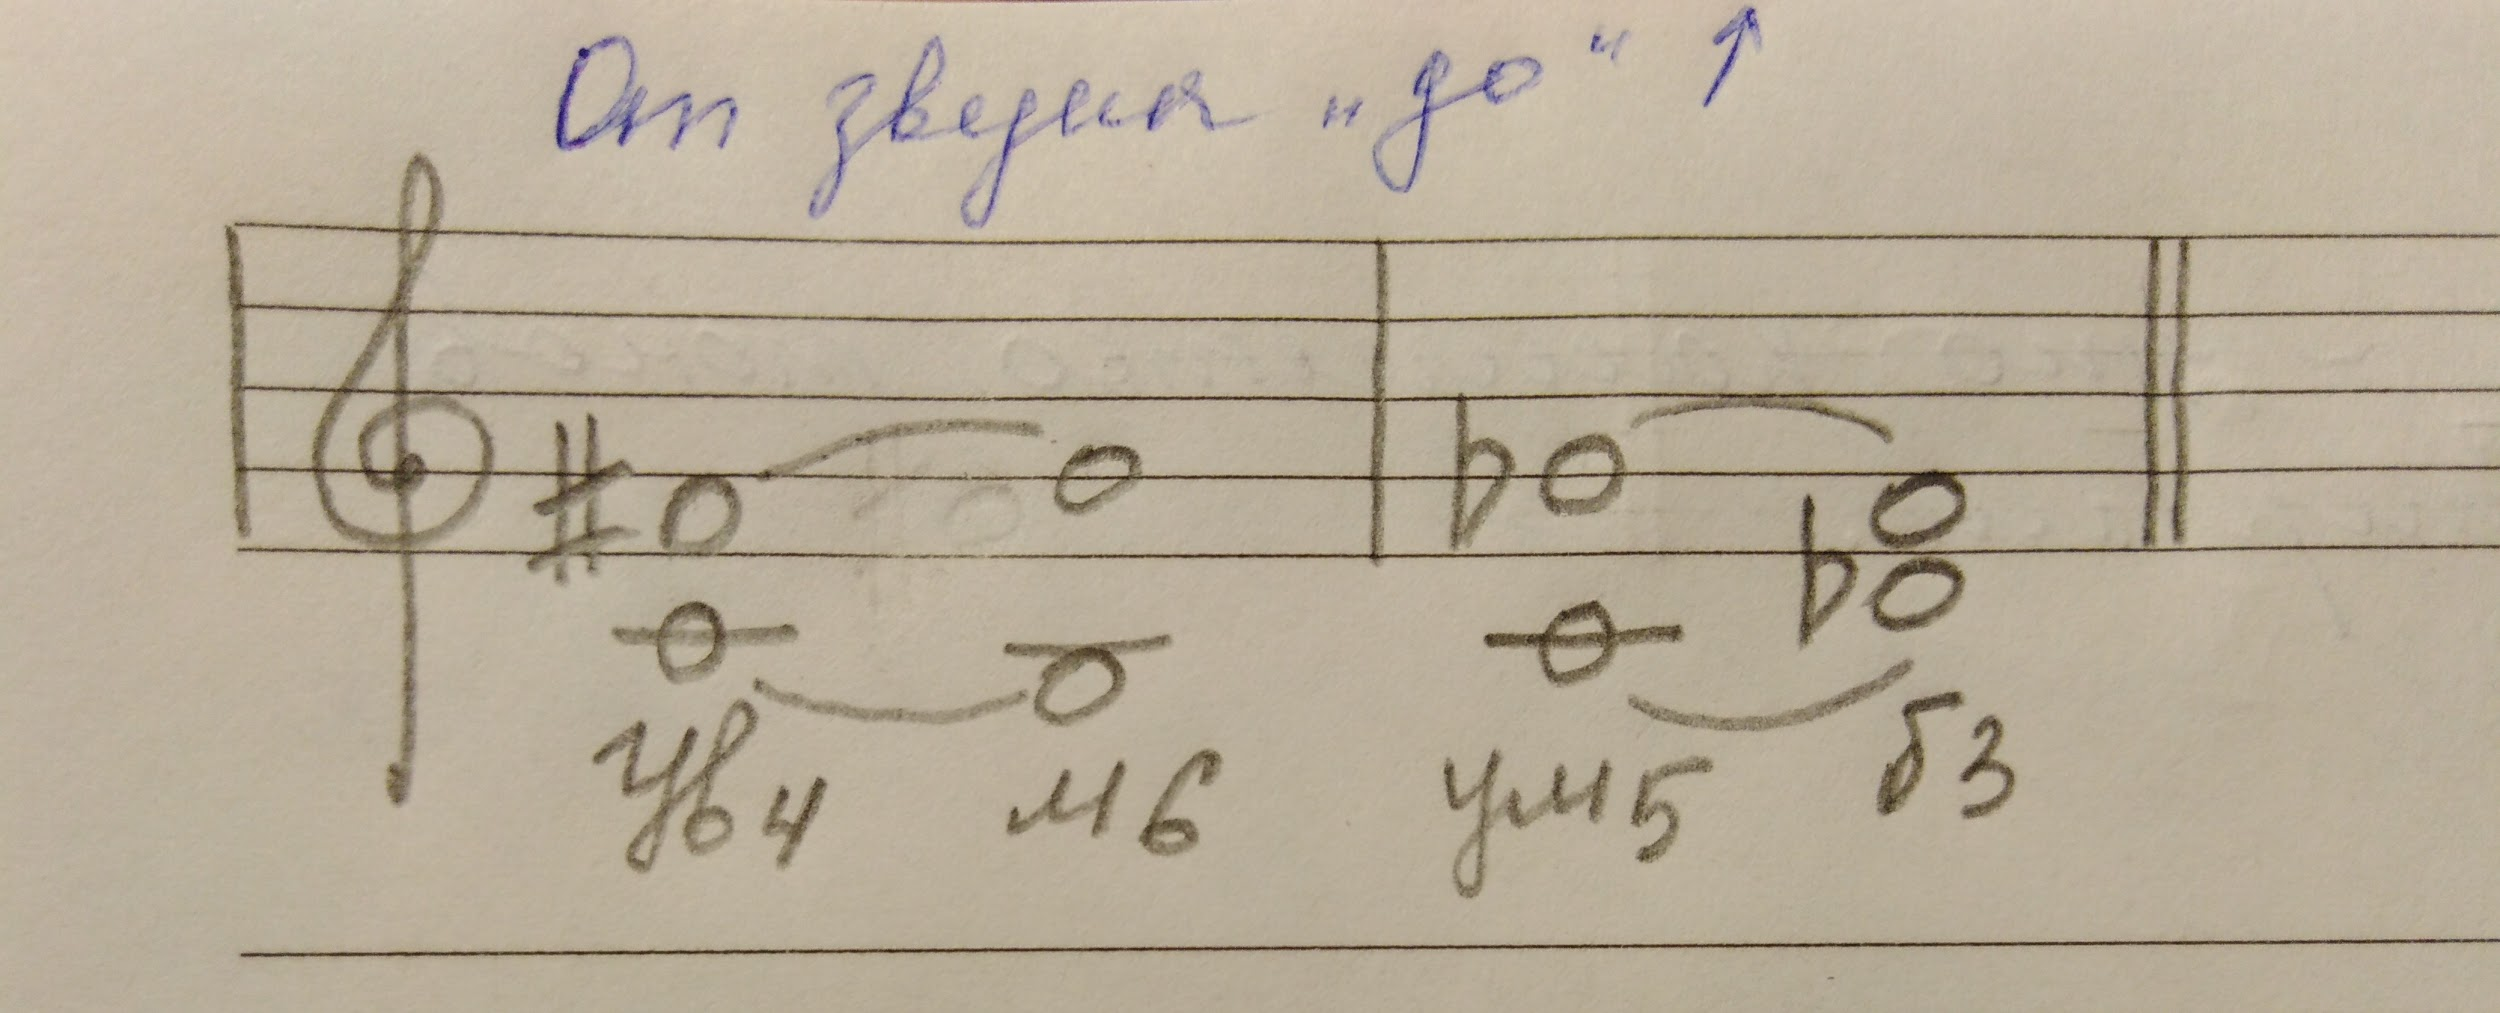 От звука „до“ ↑
ув4 м6 ум5 б3